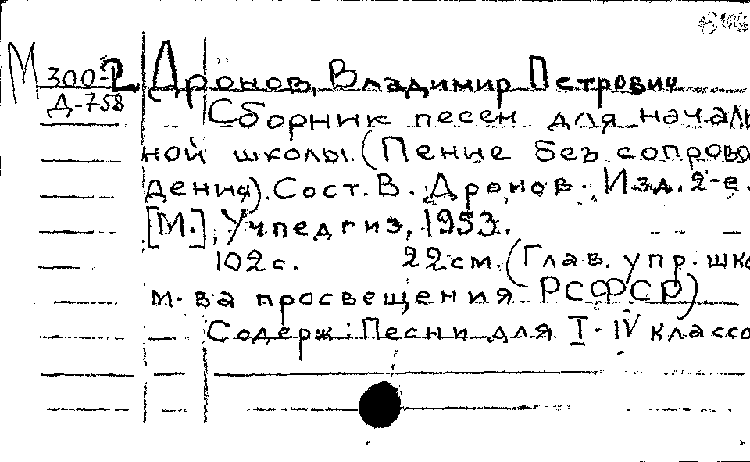 М 300-2 Дронов, Владимир Петрович
Д-758
Сборник песен для началь
ной школы. (Пение без сопрово
дения). Сост. В. Дронов. Изд. 2-е.
[М.], Учпедгиз, 1953.
102 с. 22 см. (Глав. упр. шко
м-ва просвещения РСФСР)
Содерж: Песни для I-IV классо